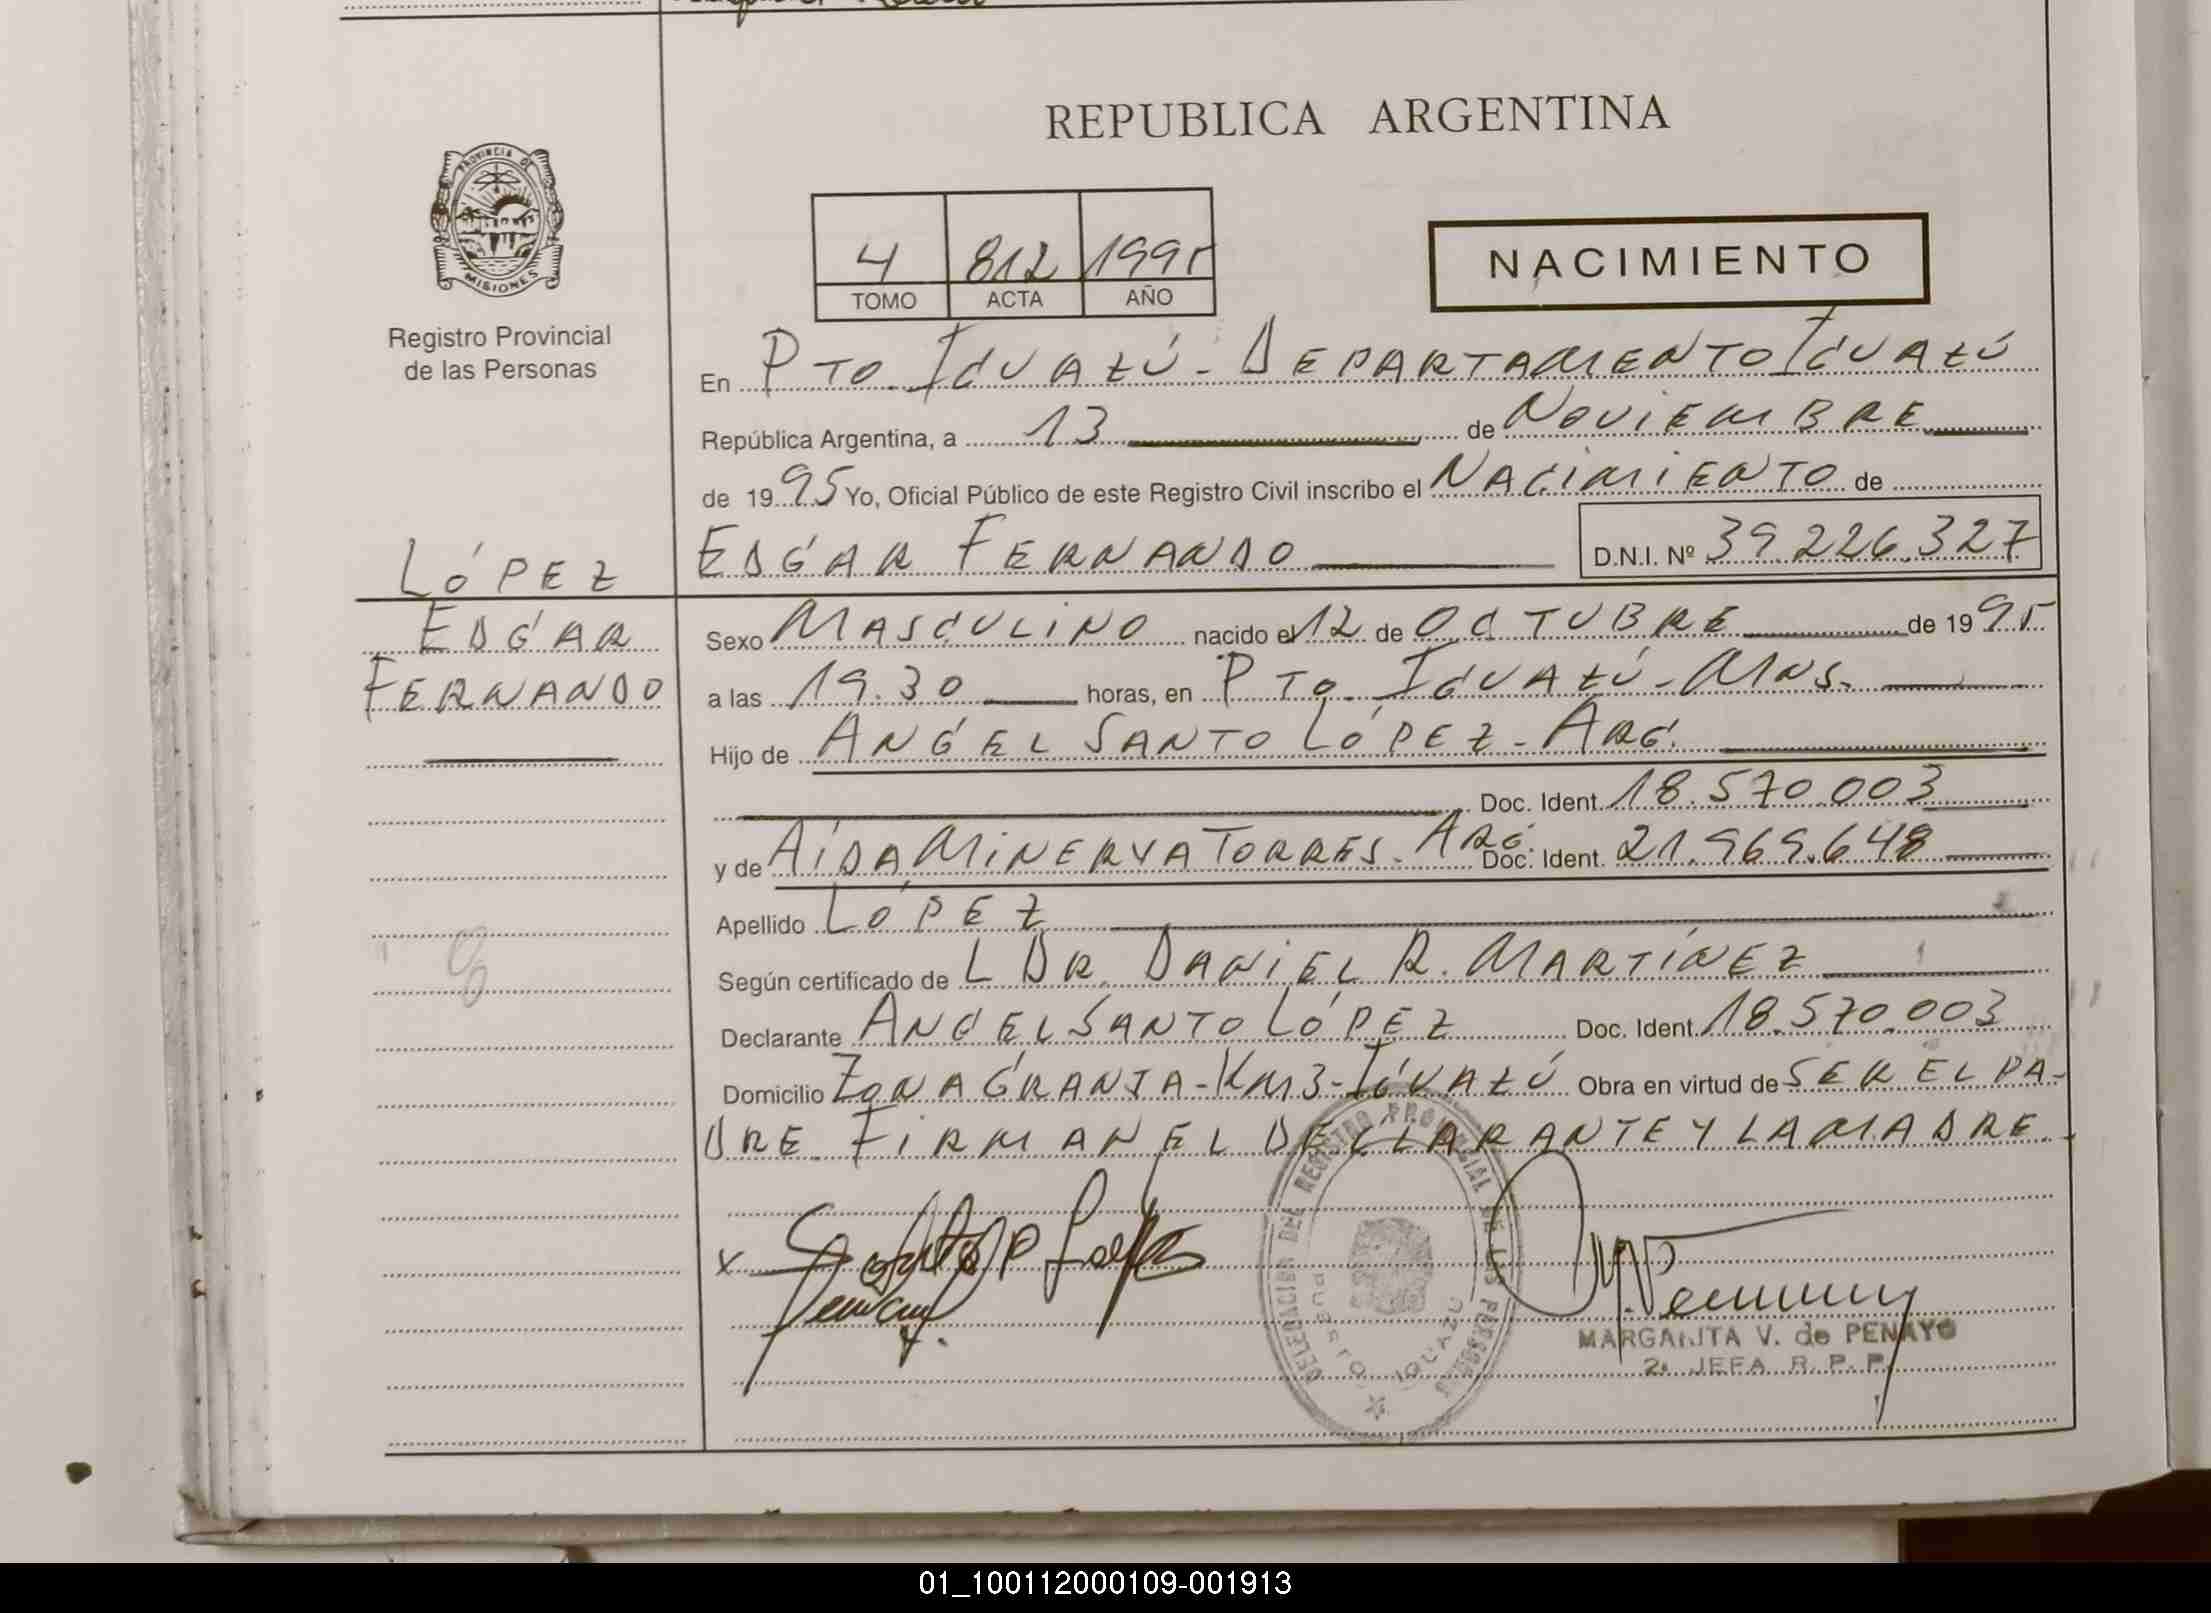 REPUBLICA ARGENTINA
PROVINCIA DE
MISIONES
Registro Provincial
de las Personas
4 812 1995
TOMO ACTA AÑO
NACIMIENTO
En PTO. IGUAZÚ - DEPARTAMENTO IGUAZÚ
República Argentina, a 13 de NOVIEMBRE
de 1995 Yo, Oficial Público de este Registro Civil inscribo el NACIMIENTO de
LÓPEZ
EDGAR FERNANDO D.N.I. Nº 39.226.327
EDGAR
FERNANDO
Sexo MASCULINO nacido el 12 de OCTUBRE de 1995
a las 19.30 horas, en PTO. IGUAZÚ - MNS.
Hijo de ANGEL SANTO LÓPEZ - ARG.
Doc. Ident. 18.570.003
y de AÍDA MINERVA TORRES. ARG. Doc. Ident. 21.969.648
Apellido LÓPEZ
Según certificado de L DR. DANIEL R. MARTÍNEZ
Declarante ANGEL SANTO LÓPEZ Doc. Ident. 18.570.003
Domicilio ZONA GRANJA - KM 3 - IGUAZÚ Obra en virtud de SER EL PA-
DRE. FIRMAN EL DECLARANTE Y LA MADRE.
x
DELEGACION DEL REGISTRO PROVINCIAL DE LAS PERSONAS
PUERTO IGUAZU
MARGARITA V. de PENAYO
2ª JEFA R. P. P.
01_100112000109-001913